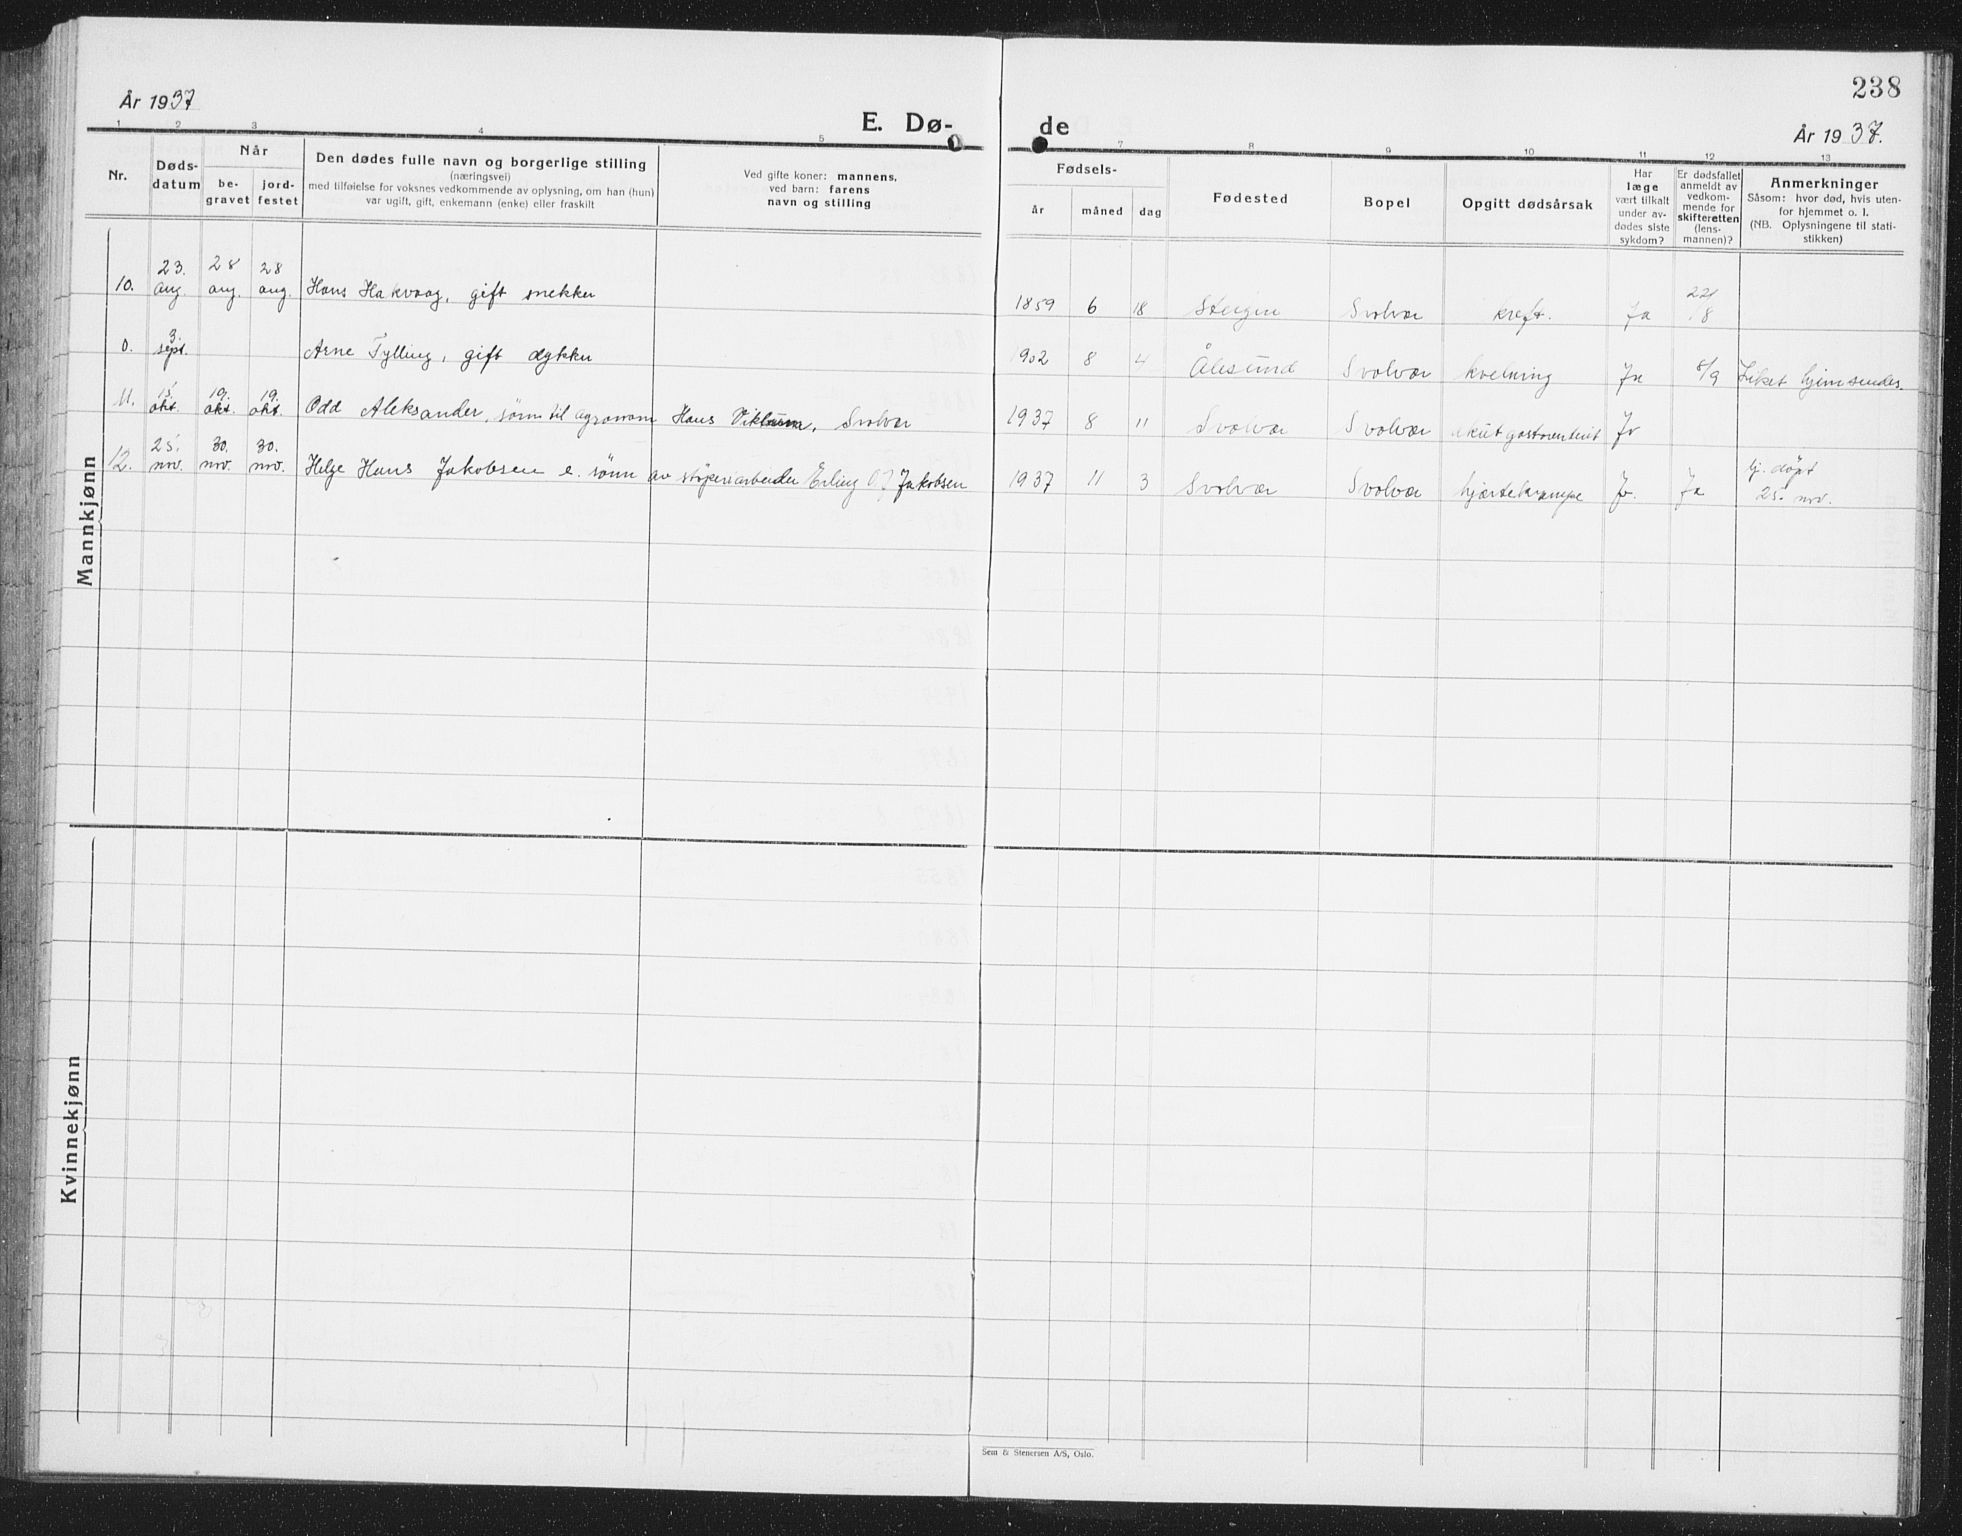 238
År 1937
År 1937.
E. Dø- de
1 2 3 4 5 7 8 9 10 11 12 13
Nr.
Døds-
datum
Når
be-
gravet
jord-
festet
Den dødes fulle navn og borgerlige stilling
(næringsvei)
med tilføielse for voksnes vedkommende av oplysning, om han (hun)
var ugift, gift, enkemann (enke) eller fraskilt
Ved gifte koner: mannens,
ved barn: farens
navn og stilling
Fødsels-
år måned dag
Fødested
Bopel
Opgitt dødsårsak
Har
læge
vært tilkalt
under av-
dødes siste
sykdom?
Er dødsfallet
anmeldt av
vedkom-
mende for
skifteretten
(lens-
mannen)?
Anmerkninger
Såsom: hvor død, hvis uten-
for hjemmet o. l.
(NB. Oplysningene til stati-
stikken)
Mannkjønn
10. 23. aug. 28 aug. 28 aug. Hans Hakvaag, gift snekker 1859 6 18 Steigen Svolvær kreft. Ja
0. 3. sept. Arne Tylling, gift dykker 1902 8 4 Ålesund Svolvær kvelning Ja 8/9 Liket hjemsendes.
11. 15. okt. 19. okt. 19. okt. Odd Aleksander, sønn til agronom Hans, Svolvær 1937 8 11 Svolvær Svolvær akut gastroenterit Ja
12. 25. nov. 30. nov. 30. nov. Helge Hans Jakobsen e. sønn av støperiarbeider Erling O J Jakobsen 1937 11 3 Svolvær Svolvær hjertekrampe Ja. Ja hj. døpt
25. nov.
Kvinnekjønn
Sem & Stenersen A/S, Oslo.